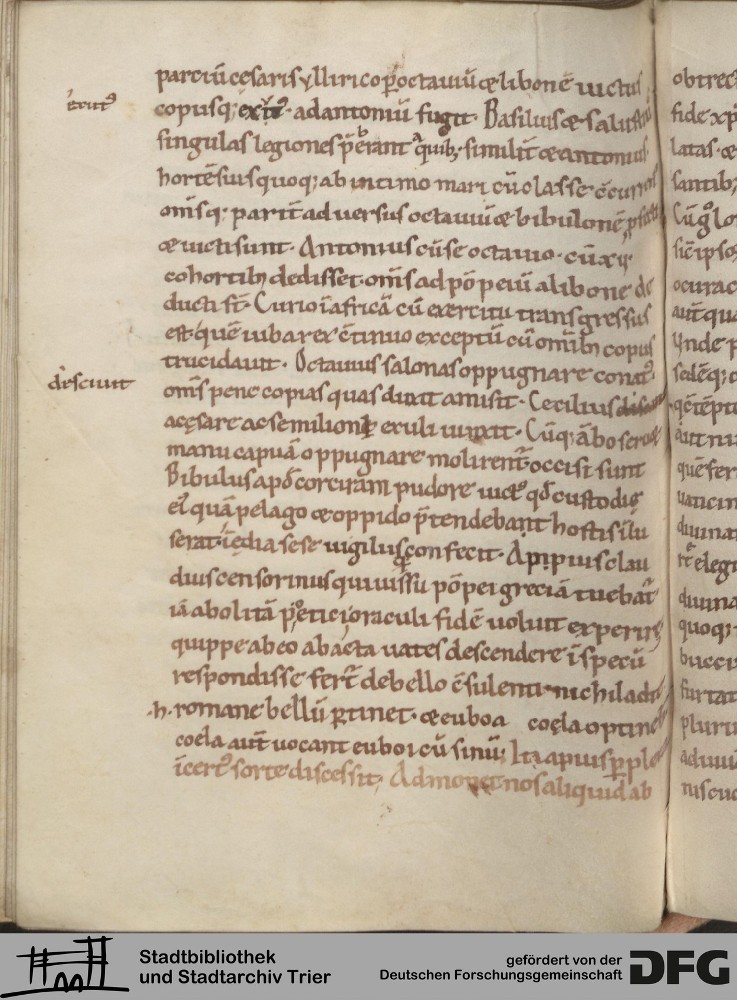 parciū cesaris ylliricop octauiū & libonē uictus
exut9
copusq; exut9 · ad antoniū fugit · Basilius & salusti9
singulas legiones p̄erant quib; similit̄ & antonius
hortēsius quoq; ab intimo mari cū classe ēcurrit
om̄sq; parit̄ aduersus octauiū & bibulonē
& uicti sunt · Antonius cū se octauio · cū xv
cohortib; dedisset · om̄s ad pōpeiū a libone de
ducti st̄ · Curio ī africā cū exercitu transgressus
est · quē iuba rex ētinuo exceptū cū om̄ib; copiis
trucidauit · Octauius salonas oppugnare conat9
desciuit
om̄s pene copias quas duxit amisit · Cecilius
a cęsare ac se milioni exuli iunxit · Cūq; ābo seruo℞
manu capuā oppugnare molirent̄ · occisi sunt
Bibulus apd̄ corciram pudore uict9 qd̄ custodię
ei9 quā pelago & oppido p̄tendebant hostis illu
serat · īedia sese uigiliisq; confecit · Appius clau
dius censorinus qui iussu pōpei greciā tuebat̄
iā abolitā pytici oraculi fidē uoluit experiri
quippe ab eo abacta uates descendere ī specū
respondisse fert̄ de bello ēsulenti · nichil ad te
·h· romane bellū ptinet · & euboa coela optineb
coela aut̄ uocant euboicū sinū; Ita apius pplexa
īcert9 sorte discessit · Admonet nos aliquid ab
obtrec
fide xp̄
latas · &
santib;
Cūg lo
ocurac
aut qua
Unde p
sedēq;
aut nu
quē fer
uaticin
diuinat
r̄t elegi
diuina
quoq;
bucci
furtat
pluri
adiuu
niscuo
Stadtbibliothek
und Stadtarchiv Trier
gefördert von der
Deutschen Forschungsgemeinschaft
DFG